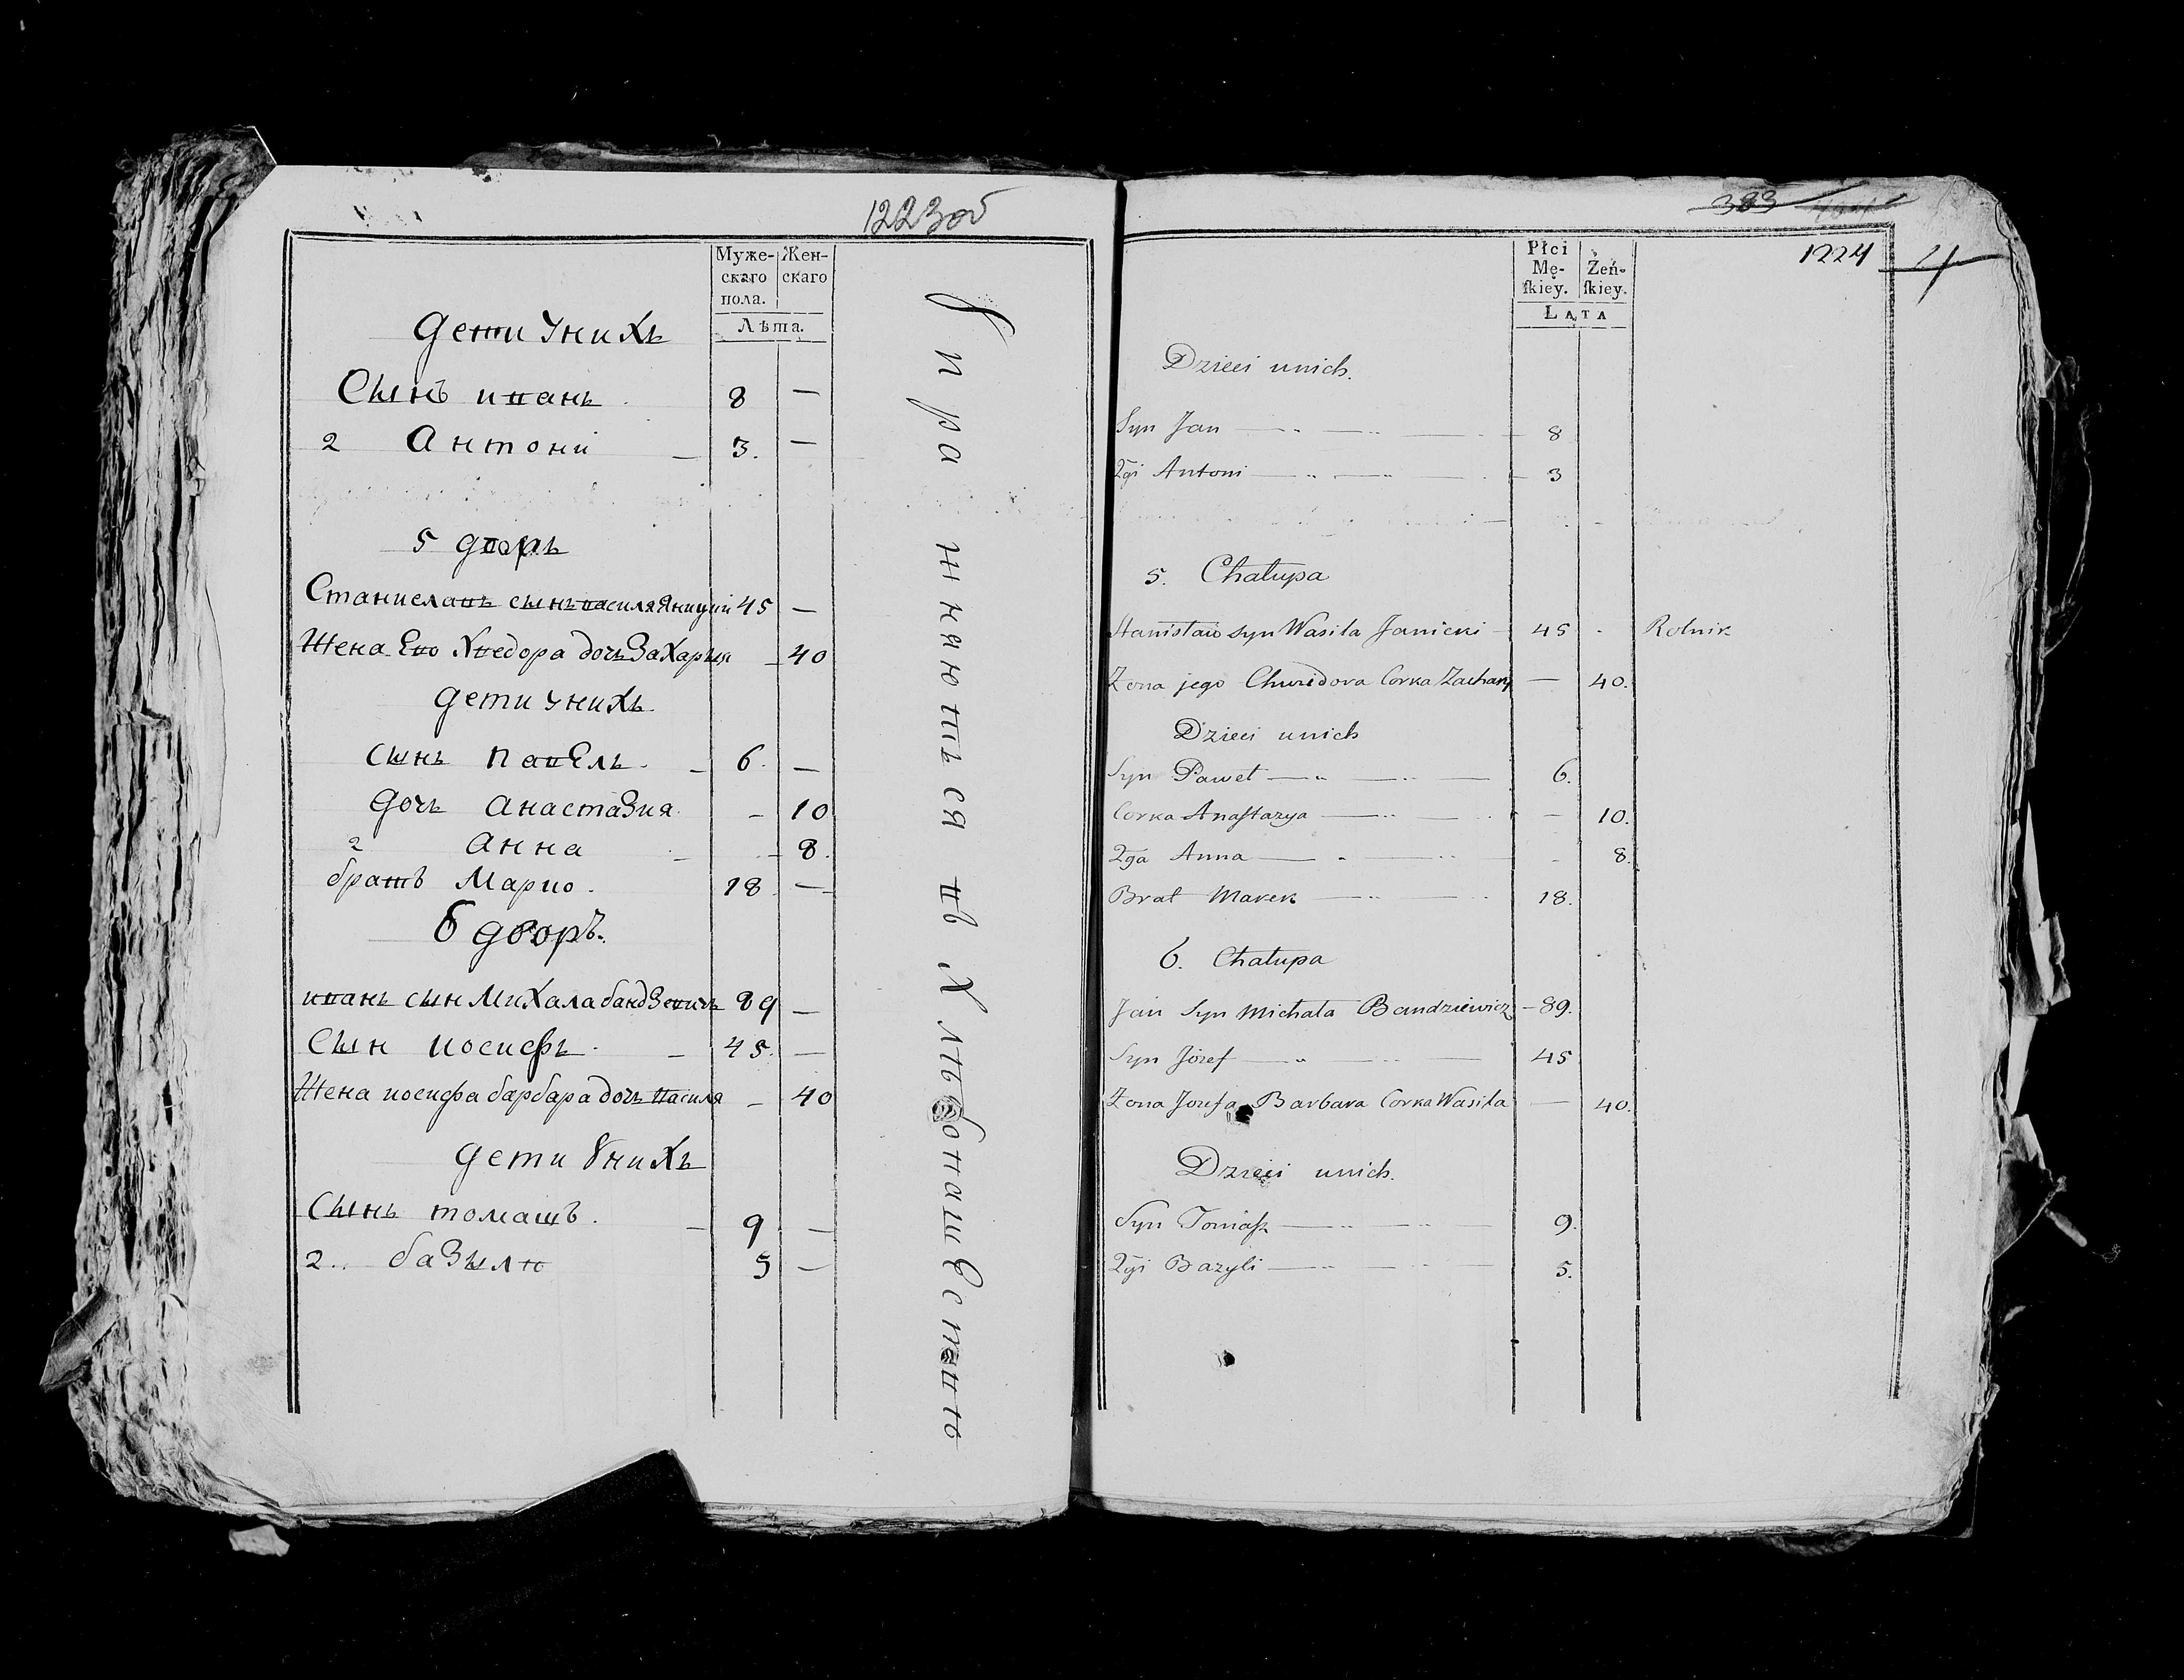 1223об
Муже-
скаго
пола.
Жен-
скаго
Лѣта.
дети Унихъ
Сынъ иванъ 8 —
2 Антони 3. —
5 дворъ
Станиславъ сынъ василя Яницкий 45 —
Жена Ево Хведора дочь Захарыя — 40
дети Унихъ
сынъ павЕлъ 6. —
дочь анастаЗия — 10
2 анна — 8.
братъ Марко 18 —
6 дворъ.
иванъ сын МиХала бандЗевичъ 89 —
Сын иосифъ 45. —
Жена иосифа барбара дочь василя — 40
дети Унихъ
Сынъ томашъ 9 —
2.. баЗыли 5 —
упражняютъся въ Хлѣбопашестве
383
1224
4
Płci
Mę-
ſkiey.
Żeń-
ſkiey.
LATA
Dzieci unich.
Syn Jan 8
2gi Antoni 3
5. Chałupa
Stanisław syn Wasila Janicki 45 Rolnik
Żona jego Chwiedora Corka Zachary — 40.
Dzieci unich
Syn Paweł 6.
Corka Anaſtazya — 10.
2ga Anna 8.
Brat Marek 18.
6. Chałupa
Jan Syn Michała Bandziewicz 89.
Syn Józef 45
Żona Jozefa Barbara Corka Wasila — 40.
Dzieci unich.
Syn Tomaſz 9.
2gi Bazyli 5.